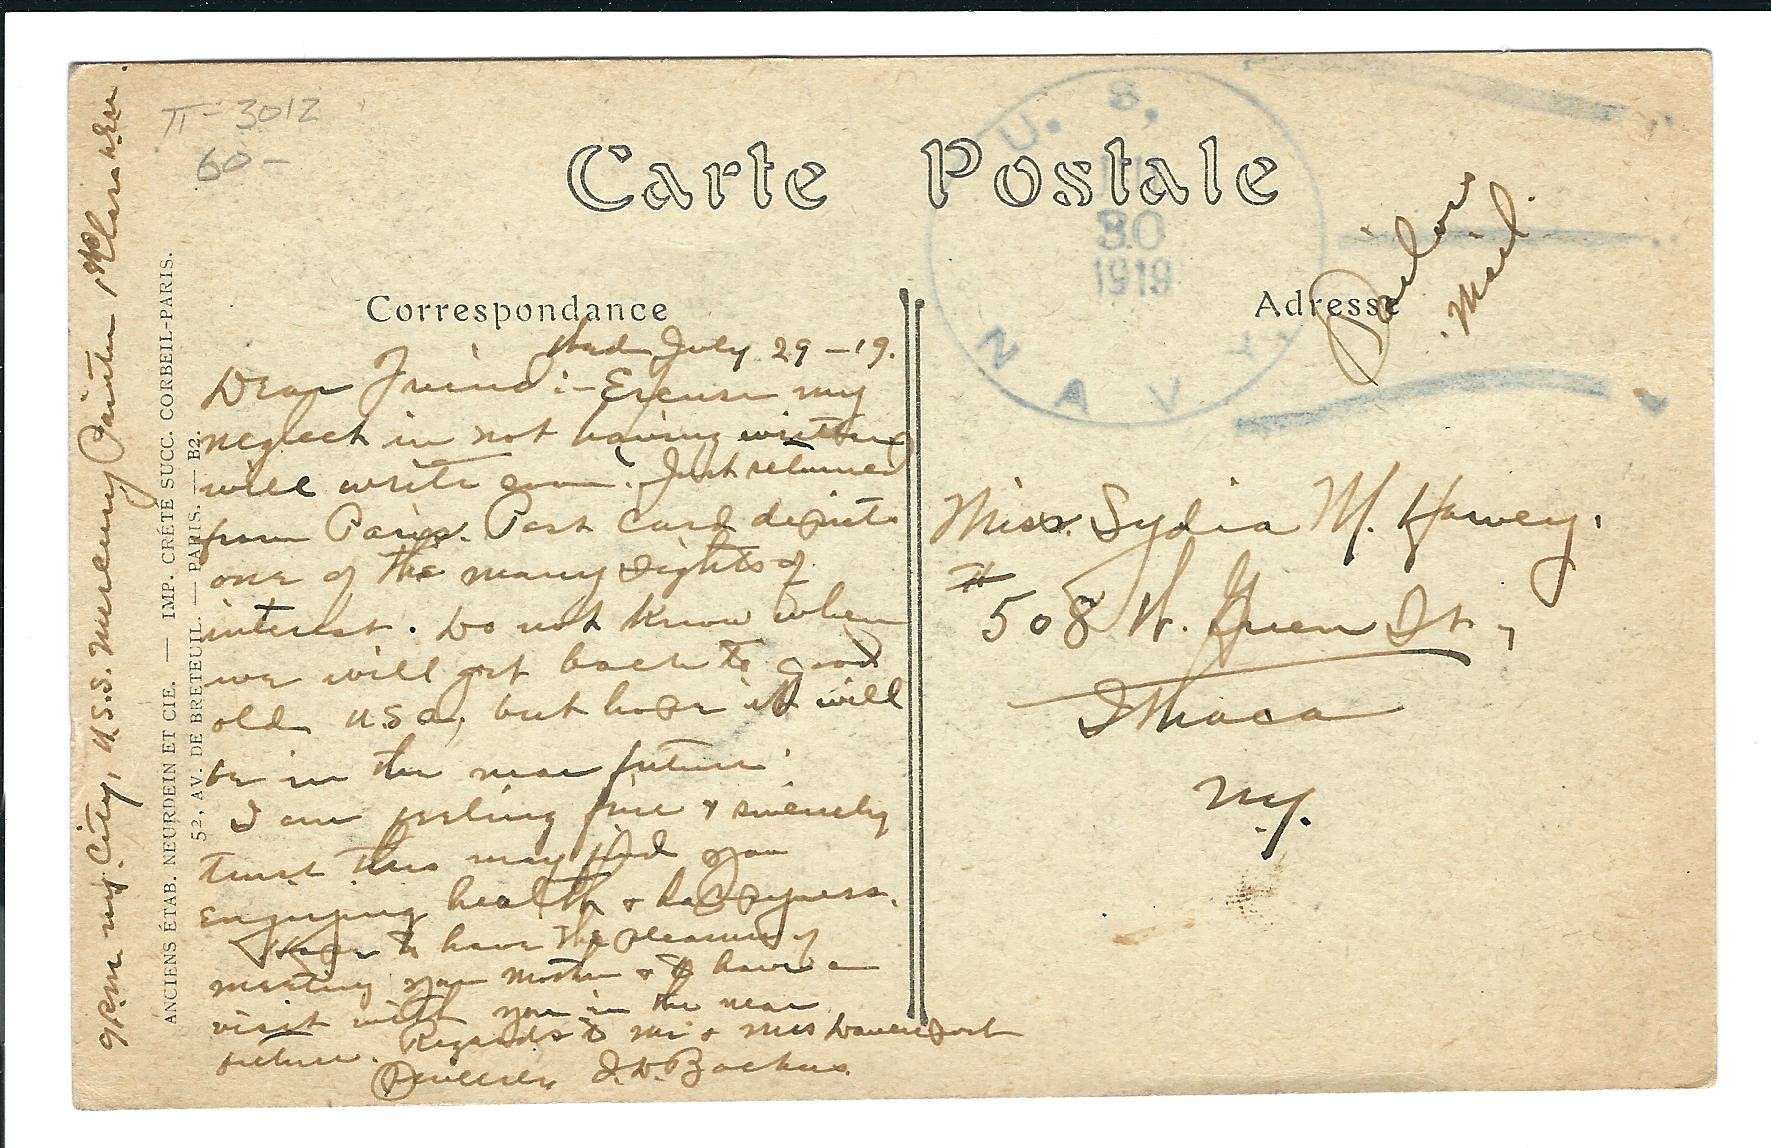 π-3012
60-
Carte Postale
U. S. NAVY.
JUL
30
1919
Correspondance
Adresse
Sailors
Mail.
Wed. July 29-19.
Dear Friend:- Excuse my
neglect in not having written
will write soon. Just returned
from Paris. Post Card depicts
one of the many sights of
interest. Do not know when
we will get back to good
old U.S.A, but hope it will
be in the near future.
I am feeling fine & sincerely
trust this may find you
enjoying health & happyness.
Hope to have the pleasure of
meeting your mother & to have a
visit with you in the near
future. Regards to Mr & Mrs Davenport
Sincerely J.W. Backus.
Miss. Lydia M. Harvey.
# 508 W. Green St.,
Ithaca
N.Y.
City, U.S.S. Mercury Painter 1st Class
ANCIENS ÉTAB. NEURDEIN ET CIE. — IMP. CRÉTÉ SUCC. CORBEIL-PARIS.
52, AV. DE BRETEUIL. — PARIS. — B2.